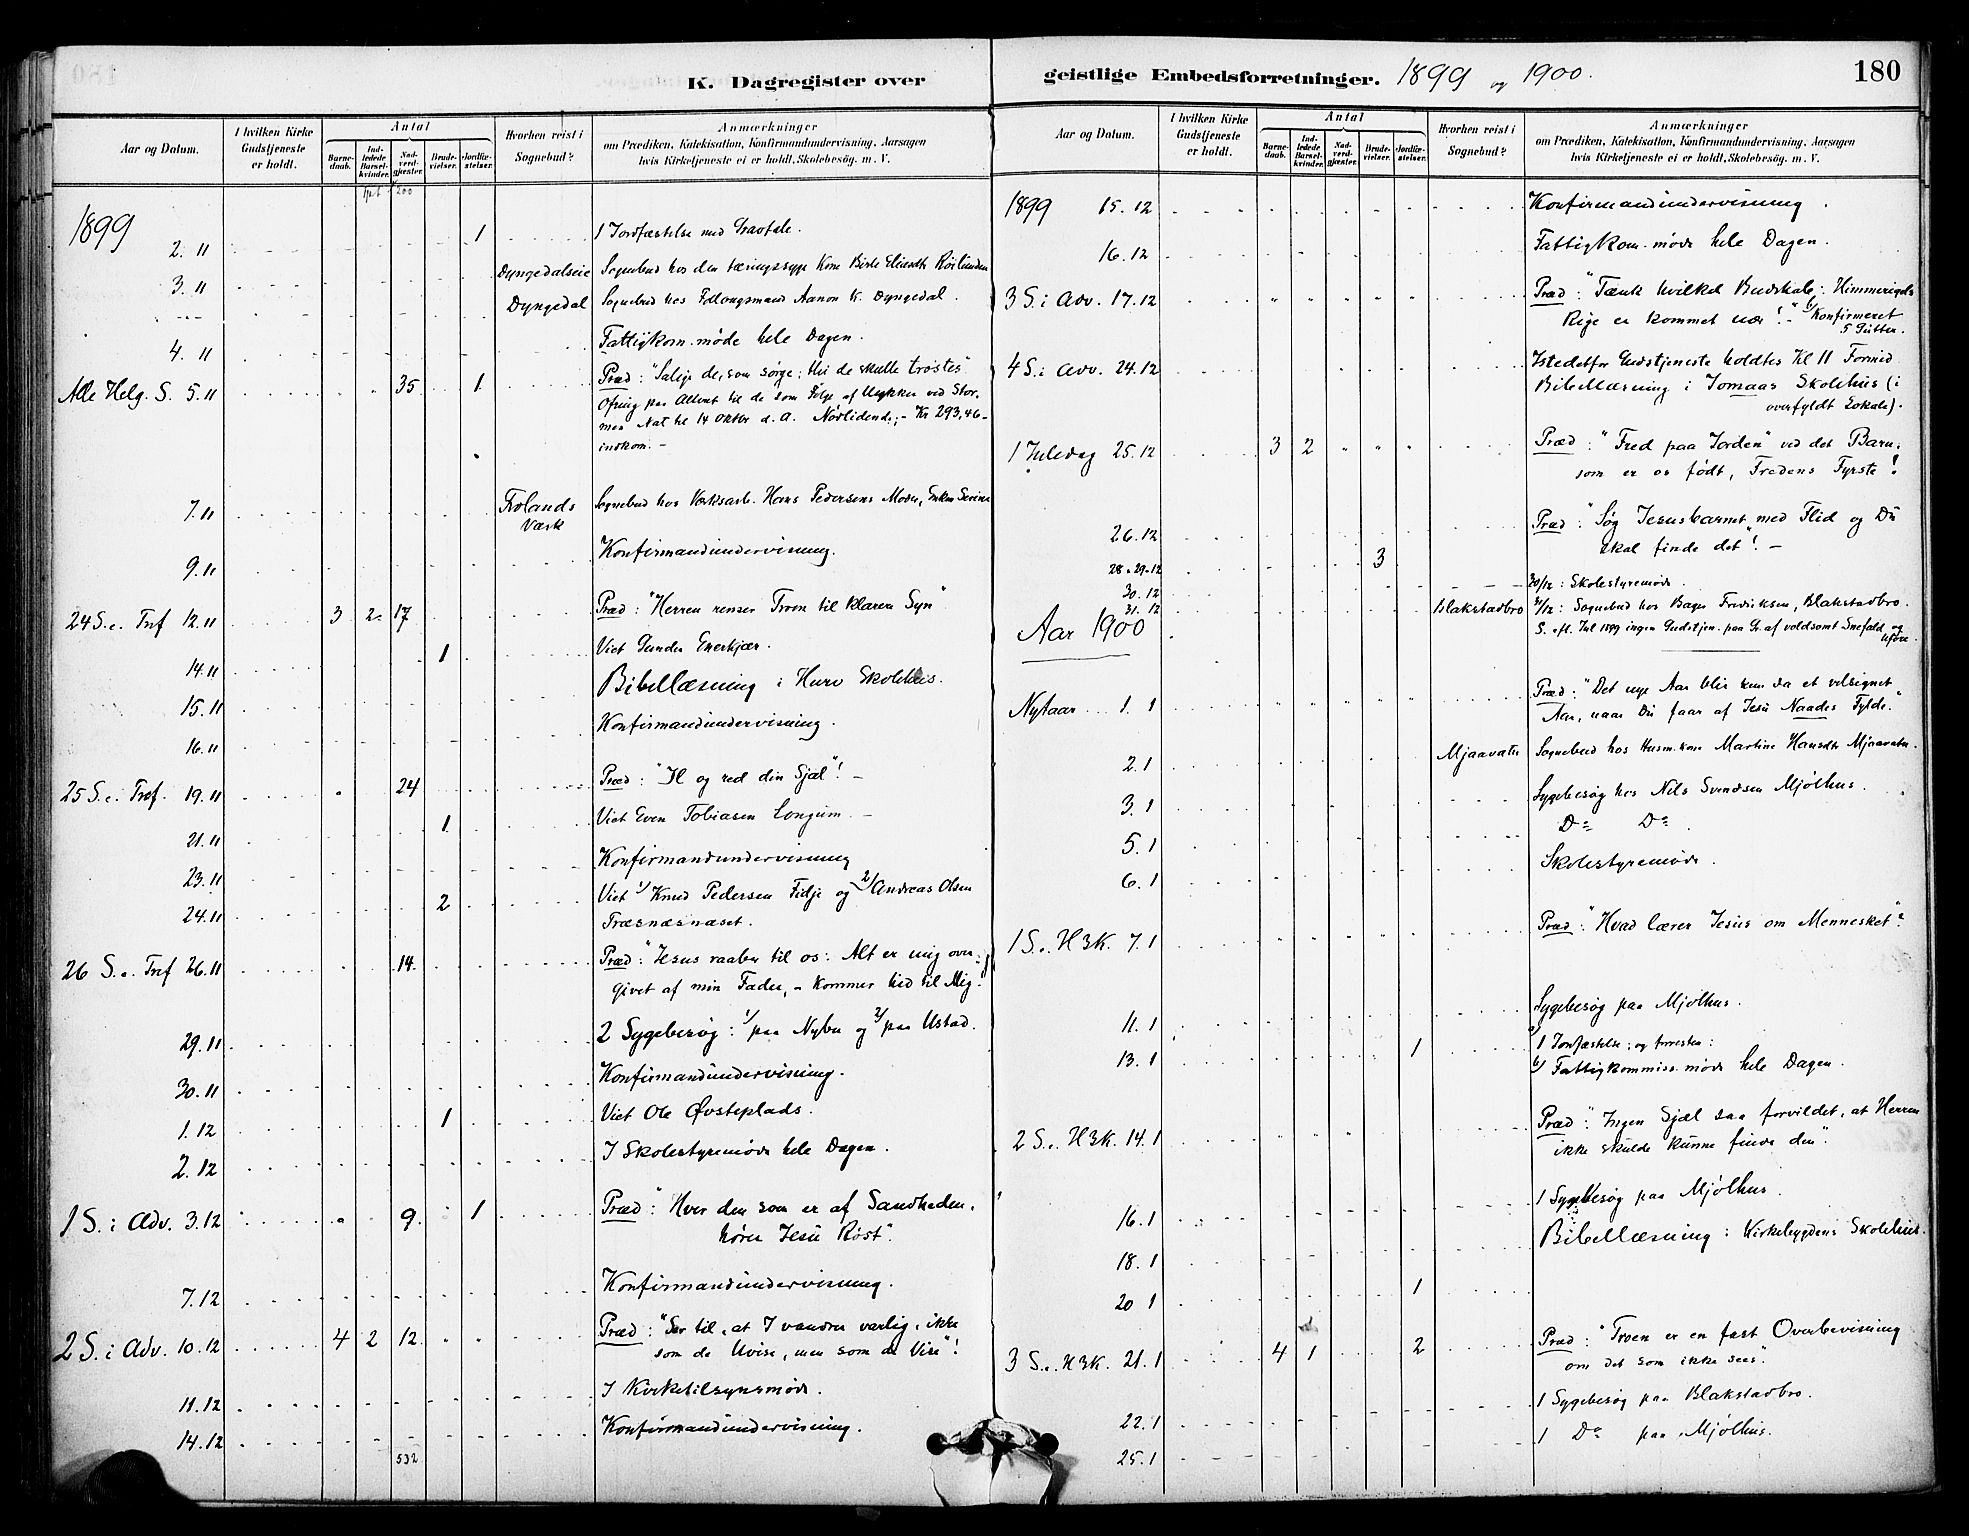 K. Dagregister over
Aar og Datum.
I hvilken Kirke Gudstjeneste er holdt.
Antal
Barne-daab.
Ind-ledede Barsel-kvinder.
Nad-verd-gjæster.
Brude-vielser.
Jordfæ-stelser.
Hvorhen reist i Sognebud?
Anmærkninger
om Prædiken, Katekisation, Konfirmandundervisning, Aarsagen
hvis Kirketjeneste ei er holdt, Skolebesøg. m. V.
1899
2.11 1 1 Jordfæstelse med Gravtale.
3.11 Dyngedalseie Sognebud hos den tæringssyge Kone
--- Dyngedal Sognebud hos Aanon K. Dyngedal.
4.11 Fattigkom. møde hele Dagen.
Alle Helg. S. 5.11 35 1 Præd: "Salige de, som sørge; thi de skulle trøstes"
Ofring paa Alteret til de som Følge af Ulykken ved Stor-
men Nat til 14 Oktbr d. A. Nødlidende; - Kr 293,46 -
indkom. -
7.11 Frolands Værk Sognebud hos Værksarb. Hans Pedersens Moder, Enken
9.11 Konfirmandundervisning.
24 S. e. Tref 12.11 3 2 17 Præd: "Herren renser Troen til klarere Syn"
14.11 1 Viet Gunder
15.11 Bibellæsning i Hurv Skolehus.
16.11 Konfirmandundervisning.
25 S. e. Tref. 19.11 24 Præd: "Il og red din Sjæl"! -
21.11 1 Viet Even Tobiasen Longum. -
23.11 Konfirmandundervisning
24.11 2 Viet 1/ Knud Pedersen Fidje og 2/ Andreas Olsen
Træsnæsnæset.
26 S. e. Tref 26.11 14 Præd: "Jesus raaber til os: Alt er mig over-
givet af min Fader, - kommer hid til Mig"!
29.11 2 Sygebesøg: 1/ paa Nybu og 2/ paa Ustad.
30.11 Konfirmandundervisning.
1.12 1 Viet Ole Øvsteplads.
2.12 I Skolestyremøde hele Dagen.
1 S. i Adv. 3.12 9 1 Præd: "Hver den som er af Sandheden,
hører Jesu Røst".
7.12 Konfirmandundervisning.
2 S. i Adv. 10.12 4 2 12 Præd: "Ser til, at I vandre varlig, ikke
som de Uvise, men som de Vise"!
11.12 I Kirketilsynsmøde.
14.12 Konfirmandundervisning.
532
geistlige Embedsforretninger. 1899 og 1900.
180
Aar og Datum.
I hvilken Kirke Gudstjeneste er holdt.
Antal
Barne-daab.
Ind-ledede Barsel-kvinder.
Nad-verd-gjæster.
Brude-vielser.
Jordfæ-stelser.
Hvorhen reist i Sognebud?
Anmærkninger
om Prædiken, Katekisation, Konfirmandundervisning, Aarsagen
hvis Kirketjeneste ei er holdt, Skolebesøg. m. V.
1899 15.12 Konfirmandundervisning.
16.12 Fattigkom. møde hele Dagen.
3 S. i Adv. 17.12 Præd: "Tænk hvilket Budskab: Himmerigets
Rige er kommet nær"! - Konfirmeret
5 Gutter.
4 S. i Adv. 24.12 Istedetfor Gudstjeneste holdtes Kl 11 Formid
Bibellæsning i Jomaas Skolehus (i
overfyldt Lokale).
1 Juledag 25.12 3 2 Præd: "Fred paa Jorden" ved det Barn,
som er os født, Fredens Fyrste!
26.12 Præd: "Søg Jesusbarnet med Flid og Du
skal finde det"! -
28. 29.12 3
30.12 30/12: Skolestyremøde.
31.12 Blakstadbro 31/12: Sognebud hos Bager Fredriksen, Blakstadbro.
S. eft. Jul 1899 ingen Gudstjen. paa Gr. af voldsomt Snefald og
Uføre.
Aar 1900
Nytaar 1.1 Præd: "Det nye Aar blir kun da et velsignet
Aar, naar Du faar af Jesu Naades Fylde."
2.1 Mjaavatn Sognebud hos Husm. kone Martine Hansdtr Mjaavatn.
3.1 Sygebesøg hos Nils Svendsen Mjølhus.
5.1 Do Do
6.1 Skolestyremøde.
1 S. e. H3K. 7.1 Præd: "Hvad lærer Jesus om Mennesket"?
11.1 Sygebesøg paa Mjølhus.
13.1 1 a/ 1 Jordfæstelse; og forresten:
b/ Fattigkommiss. møde hele Dagen.
2 S. e. H3K. 14.1 Præd: "Ingen Sjæl saa forvildet, at Herren
ikke skulde kunne finde den".
16.1 1 Sygebesøg paa Mjølhus.
18.1 Bibellæsning i Kirkebygdens Skolehus.
20.1 1
3 S. e. H3K. 21.1 4 1 2 Præd: "Troen er en fast Overbevisning
om det som ikke sees".
22.1 1 Sygebesøg paa Blakstadbro.
25.1 1 Do paa Mjølhus.